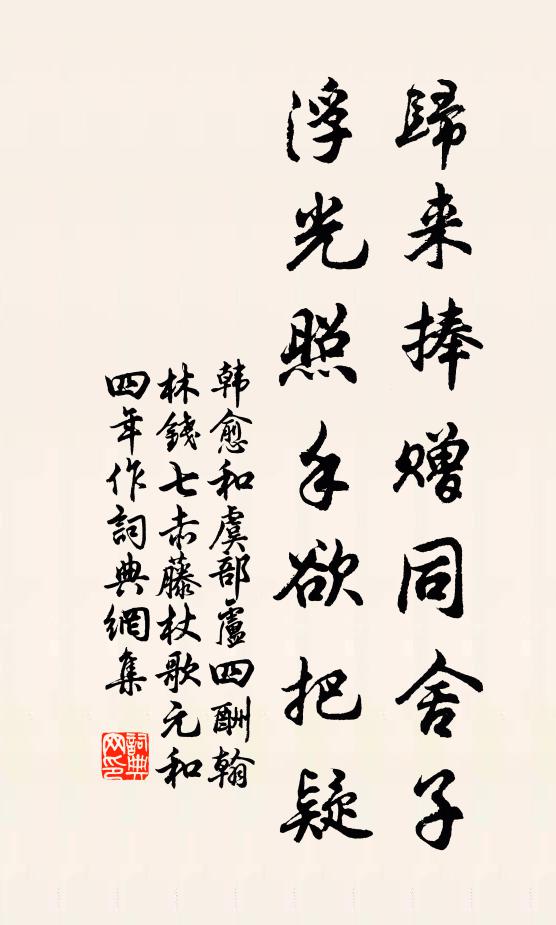 歸来捧赠同舍子
浮光照手欲把疑
韩愈和虞部盧四酬翰
林錢七赤藤杖歌元和
四年作詞典網集
詞典网印